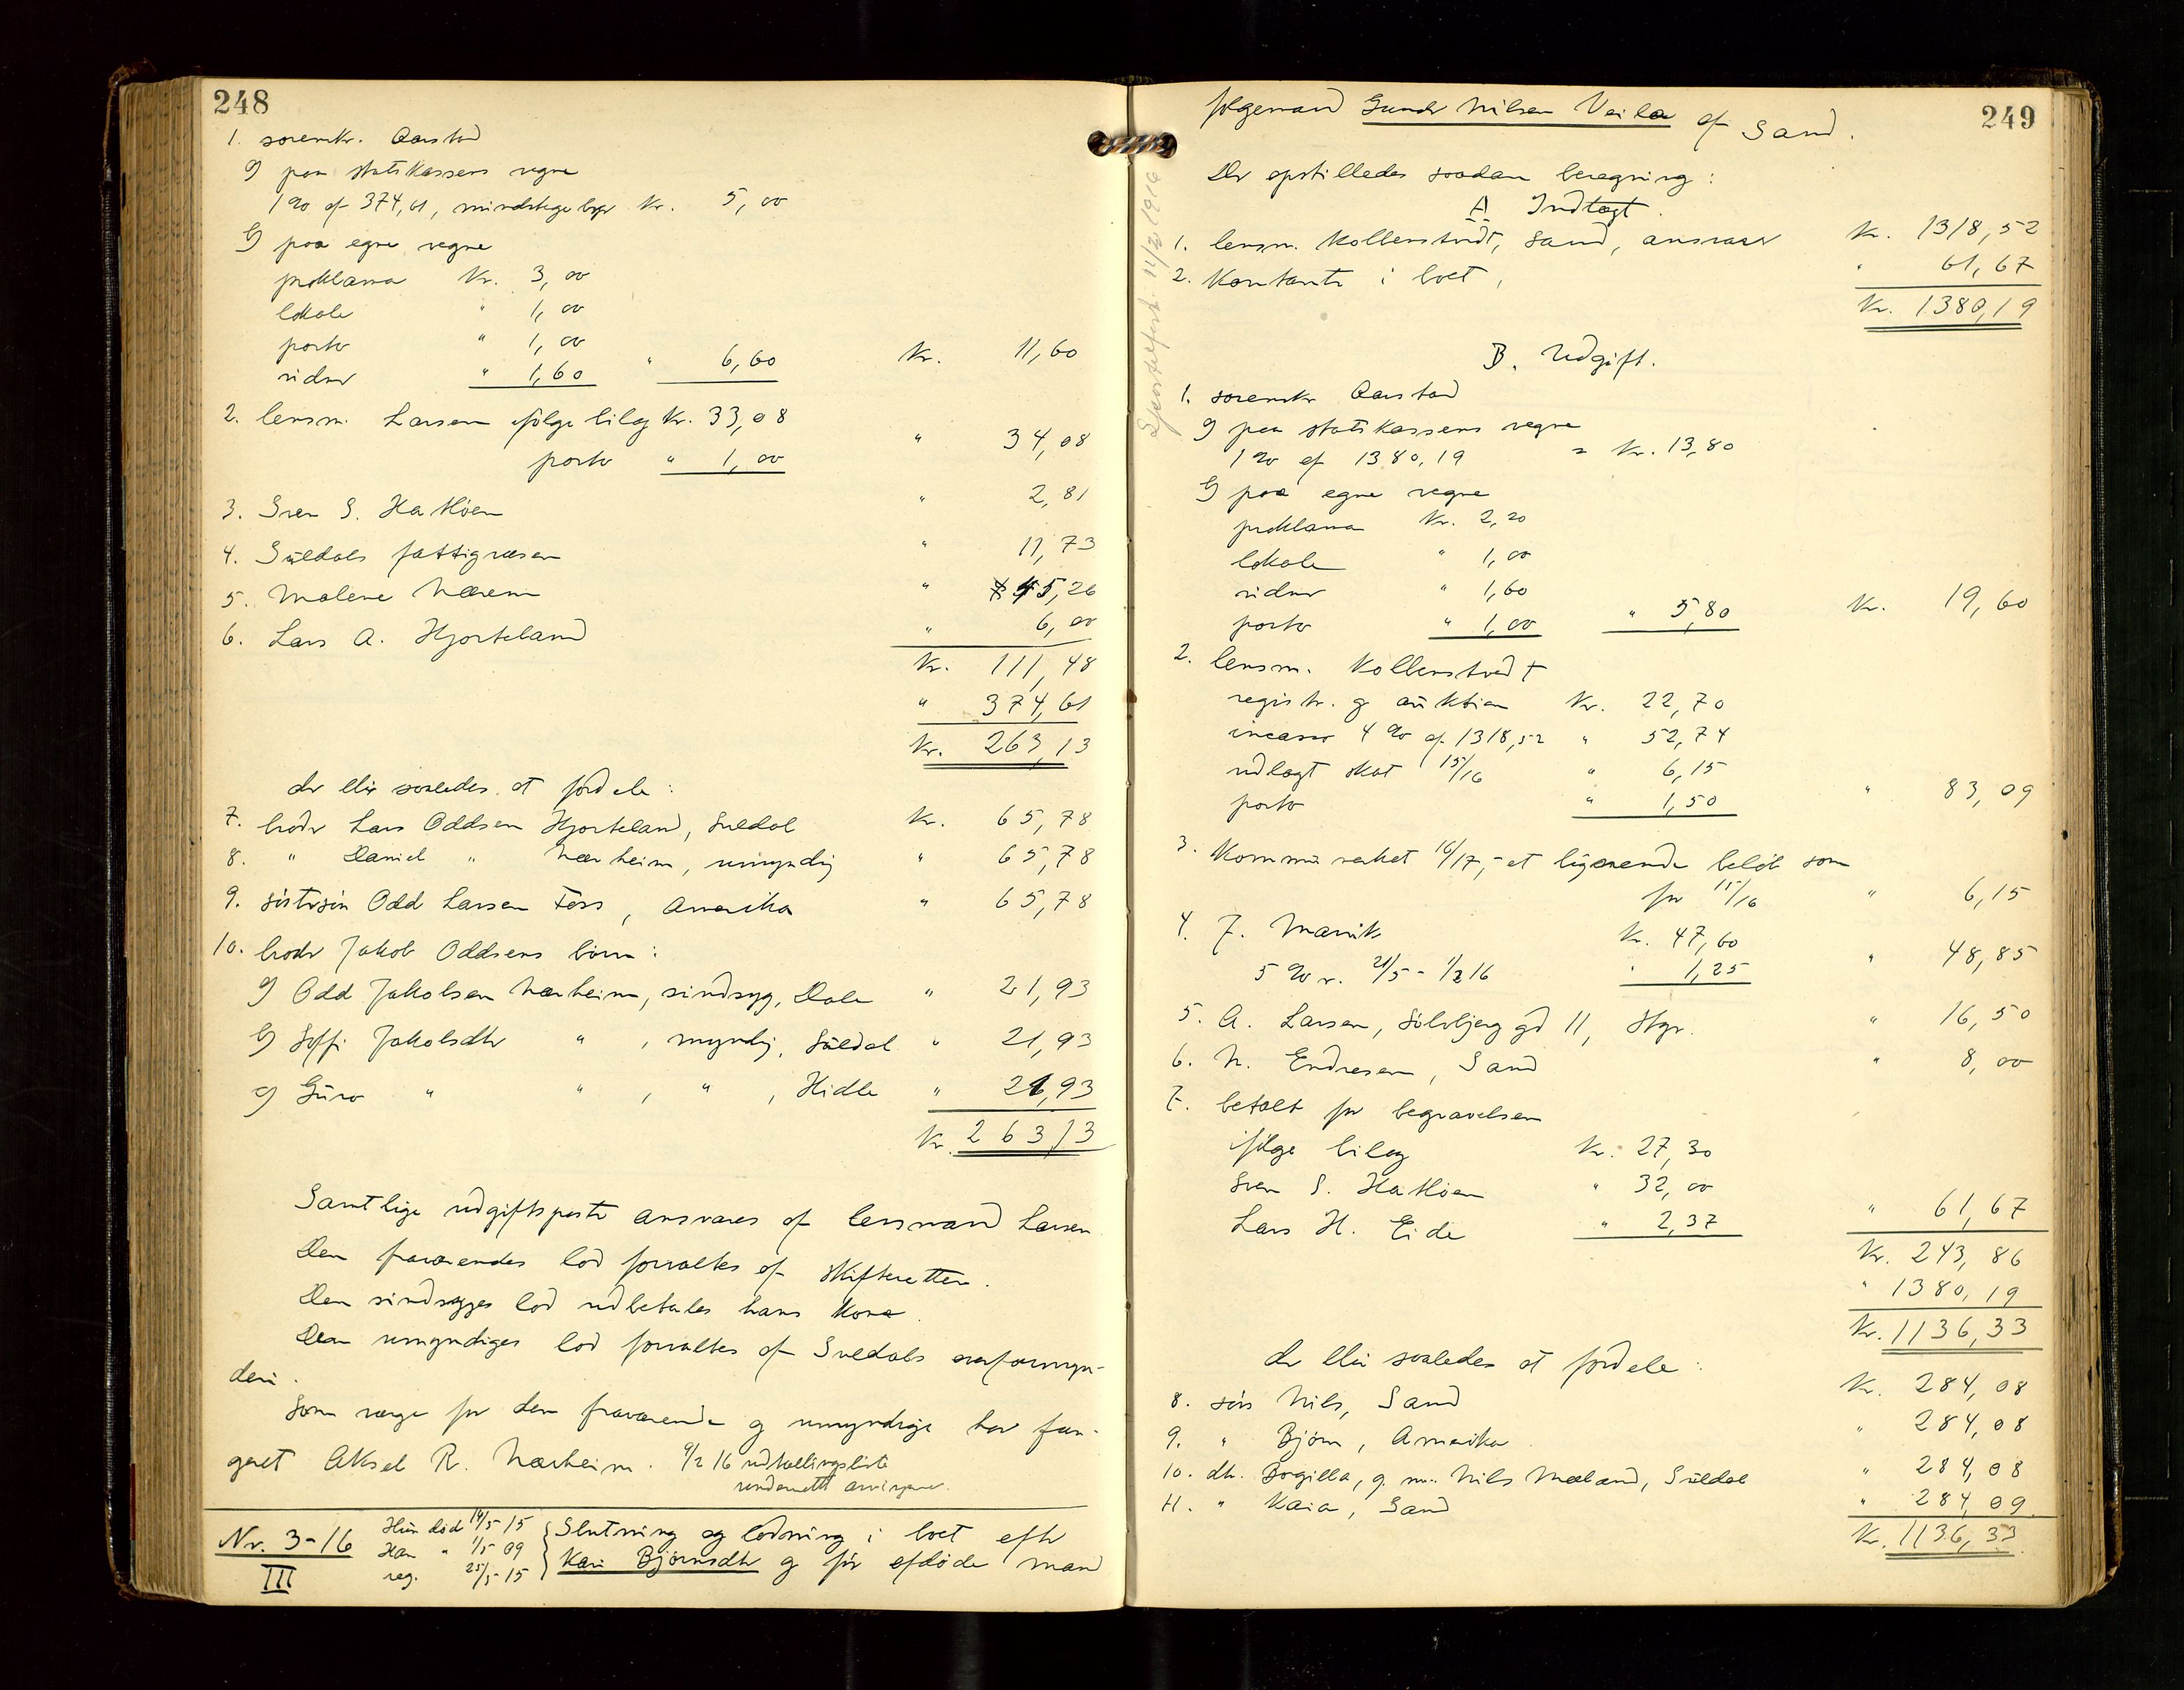 248
1. sorenskr. Aarstad
a) paa statskassens vegne
1 % af 374,61, mindstegebyr Kr. 5,00
b) paa egne vegne
proklama Kr. 3,00
lokale " 1,00
porto " 1,00
vidner " 1,60 " 6,60 Kr. 11,60
2. lensm. Larsen ifølge bilag Kr. 33,08
porto " 1,00 " 34,08
3. Sven S. Hatløen " 2,81
4. Suldals fattigvæsen " 11,73
5. Malene Nærem " 45,26
6. Lars A. Hjorteland " 6,00
Kr. 111,48
" 374,61
Kr. 263,13
der blir saaledes at fordele:
7. broder Lars Oddsen Hjorteland, Suldal Kr. 65,78
8. " Daniel " Nærheim, umyndig " 65,78
9. søstersøn Odd Larsen Foss, Amerika " 65,78
10. broder Jakob Oddsens børn:
a) Odd Jakobsen Nærheim, sindsyg, Dale " 21,93
b) Soffi Jakobsdtr " , myndig, Suldal " 21,93
c) Guro " " , " , Hidle " 21,93
Kr. 263,13
Samtlige udgiftsposter ansvares af lensmand Larsen
Den fraværendes lod forvaltes af skifteretten.
Den sindssyges lod udbetales hans kone.
Den umyndiges lod forvaltes af Suldals overformyn-
deri.
Som værge for den fraværende og umyndige har fun-
geret Aksel R. Nærheim. 9/2 16 udlodningsliste
arvingene.
Nr. 3-16 Hun død 14/5 15 Slutning og lodning i boet efter
III Han " 1/5 09 Kari Bjørnsdtr og før afdøde mand
reg. 25/5 15
249
følgemand Gunder Nilsen Veila af Sand.
Der opstilledes saadan beregning:
A Indtægt.
1. lensm. Kollenstvedt, Sand, ansvarer Kr. 1318,52
2. Kontante i boet, " 61,67
Kr. 1380,19
B. Udgift.
1. sorenskr Aarstad
a) paa statskassens vegne
1 % af 1380,19 = Kr. 13,80
b) paa egne vegne
proklama Kr. 2,20
lokale " 1,00
vidner " 1,60
porto " 1,00 " 5,80 Kr. 19,60
2. lensm. Kollenstvedt
registr. og auktion Kr. 22,70
incasso 4 % af 1318,52 " 52,74
udlagt skat 15/16 " 6,15
porto " 1,50 " 83,09
3. 16/17, - et lignende beløb som
for 15/16 " 6,15
4. J. Mævik Kr. 47,60
5 % r. 21/5 - 1/2 16 " 1,25 " 48,85
5. A. Larsen, Sølvbjerg gd 11, Stgr. " 16,50
6. N. Endresen, Sand " 8,00
7. betalt for begravelsen
ifølge bilag Kr. 27,30
Sven S. Hatløen " 32,00
Lars H. Eide " 2,37 " 61,67
Kr. 243,86
" 1380,19
Kr. 1136,33
der blir saaledes at fordele:
8. søn Nils, Sand Kr. 284,08
9. " Bjørn, Amerika " 284,08
10. dtr. Borgilla, g. m. Nils Mæland, Suldal " 284,08
11. " Kaia, Sand " 284,09
Kr. 1136,33